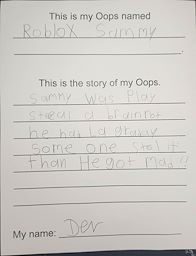 This is my Oops named
Roblox Sammy
This is the story of my Oops.
Sammy was Play
Steal a brainrot
he hat La grana
Some one Stol it
than He got Mad
My name: Dev